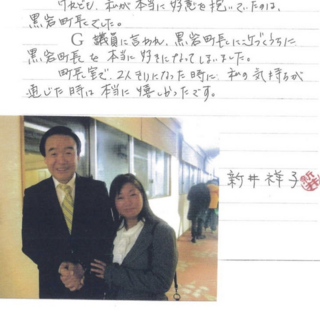 けれども、私が本当に好意を抱いていたのは、
黒岩町長でした。
G 議員に言われ、黒岩町長に近づくうちに
黒岩町長を本当に好きになってしまいました。
町長室で、2人きりになった時に、私の気持ちが
通じた時は本当に嬉しかったです。
新井祥子